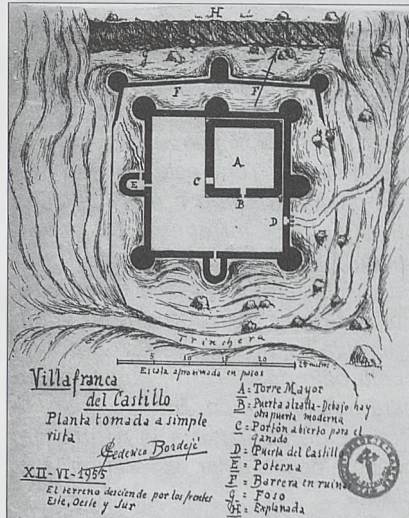 H
g
g
g
F
F
A
C
B
E
D
Trinchera
5 10 15 20 25 metros
Escala aproximada en pasos
Villafranca
del Castillo
Planta tomada a simple
vista
Federico Bordejé
XII-VI-1955
El terreno desciende por los frentes
Este, Oeste y Sur
A = Torre Mayor
B = Puerta alzada - Debajo hay
otra puerta moderna
C = Portón abierto para el
ganado
D = Puerta del Castillo
E = Poterna
F = Barrera en ruinas
g = Foso
H = Explanada